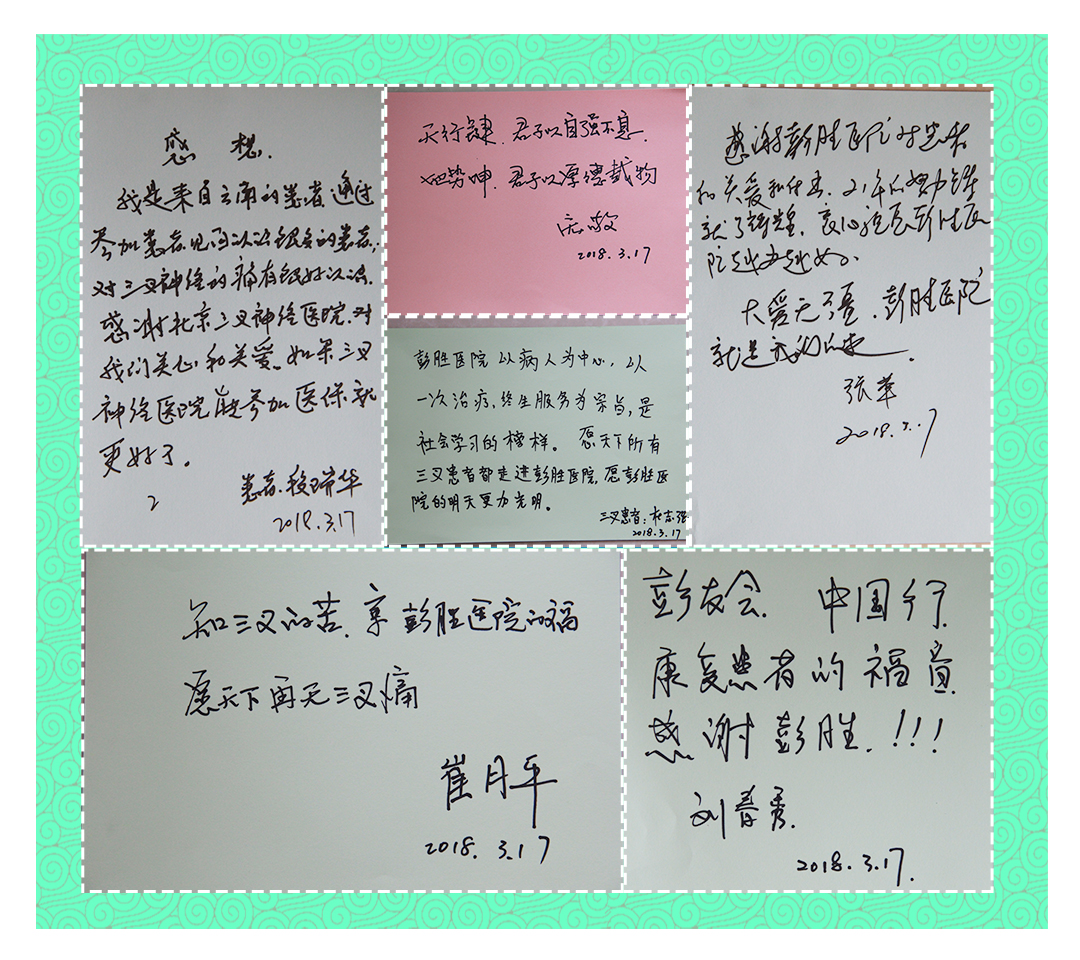 感想.
我是来自云南的患者通过
参加患者见面会认识很多的患者,
对三叉神经的痛有很好认识.
感谢北京三叉神经医院.对
我们关心和关爱。如果三叉
神经医院能参加医保就
更好了。
患者.段瑞华
2018.3.17
天行键.君子以自强不息.
地势呻.君子以厚德载物
敬
2018.3.17
彭胜医院以病人为中心,以
一次治疗、终生服务为宗旨,是
社会学习的榜样。愿天下所有
三叉患者都走进彭胜医院,愿彭胜医
院的明天更力光明。
三叉患者:杜志强
2018.3.17
感谢彭胜医院对患者
的关爱和付出.21年的努力铸
就了辉煌.衷心祝愿彭胜医
院越办越好。
大爱无疆.彭胜医院
就是我的家.
张苹
2018.3.17
知三叉的苦.享彭胜医院的福
愿天下再无三叉痛
崔月平
2018.3.17
彭友会.中国行
康复患者的福音
感谢彭胜.!!!
刘春秀.
2018.3.17.